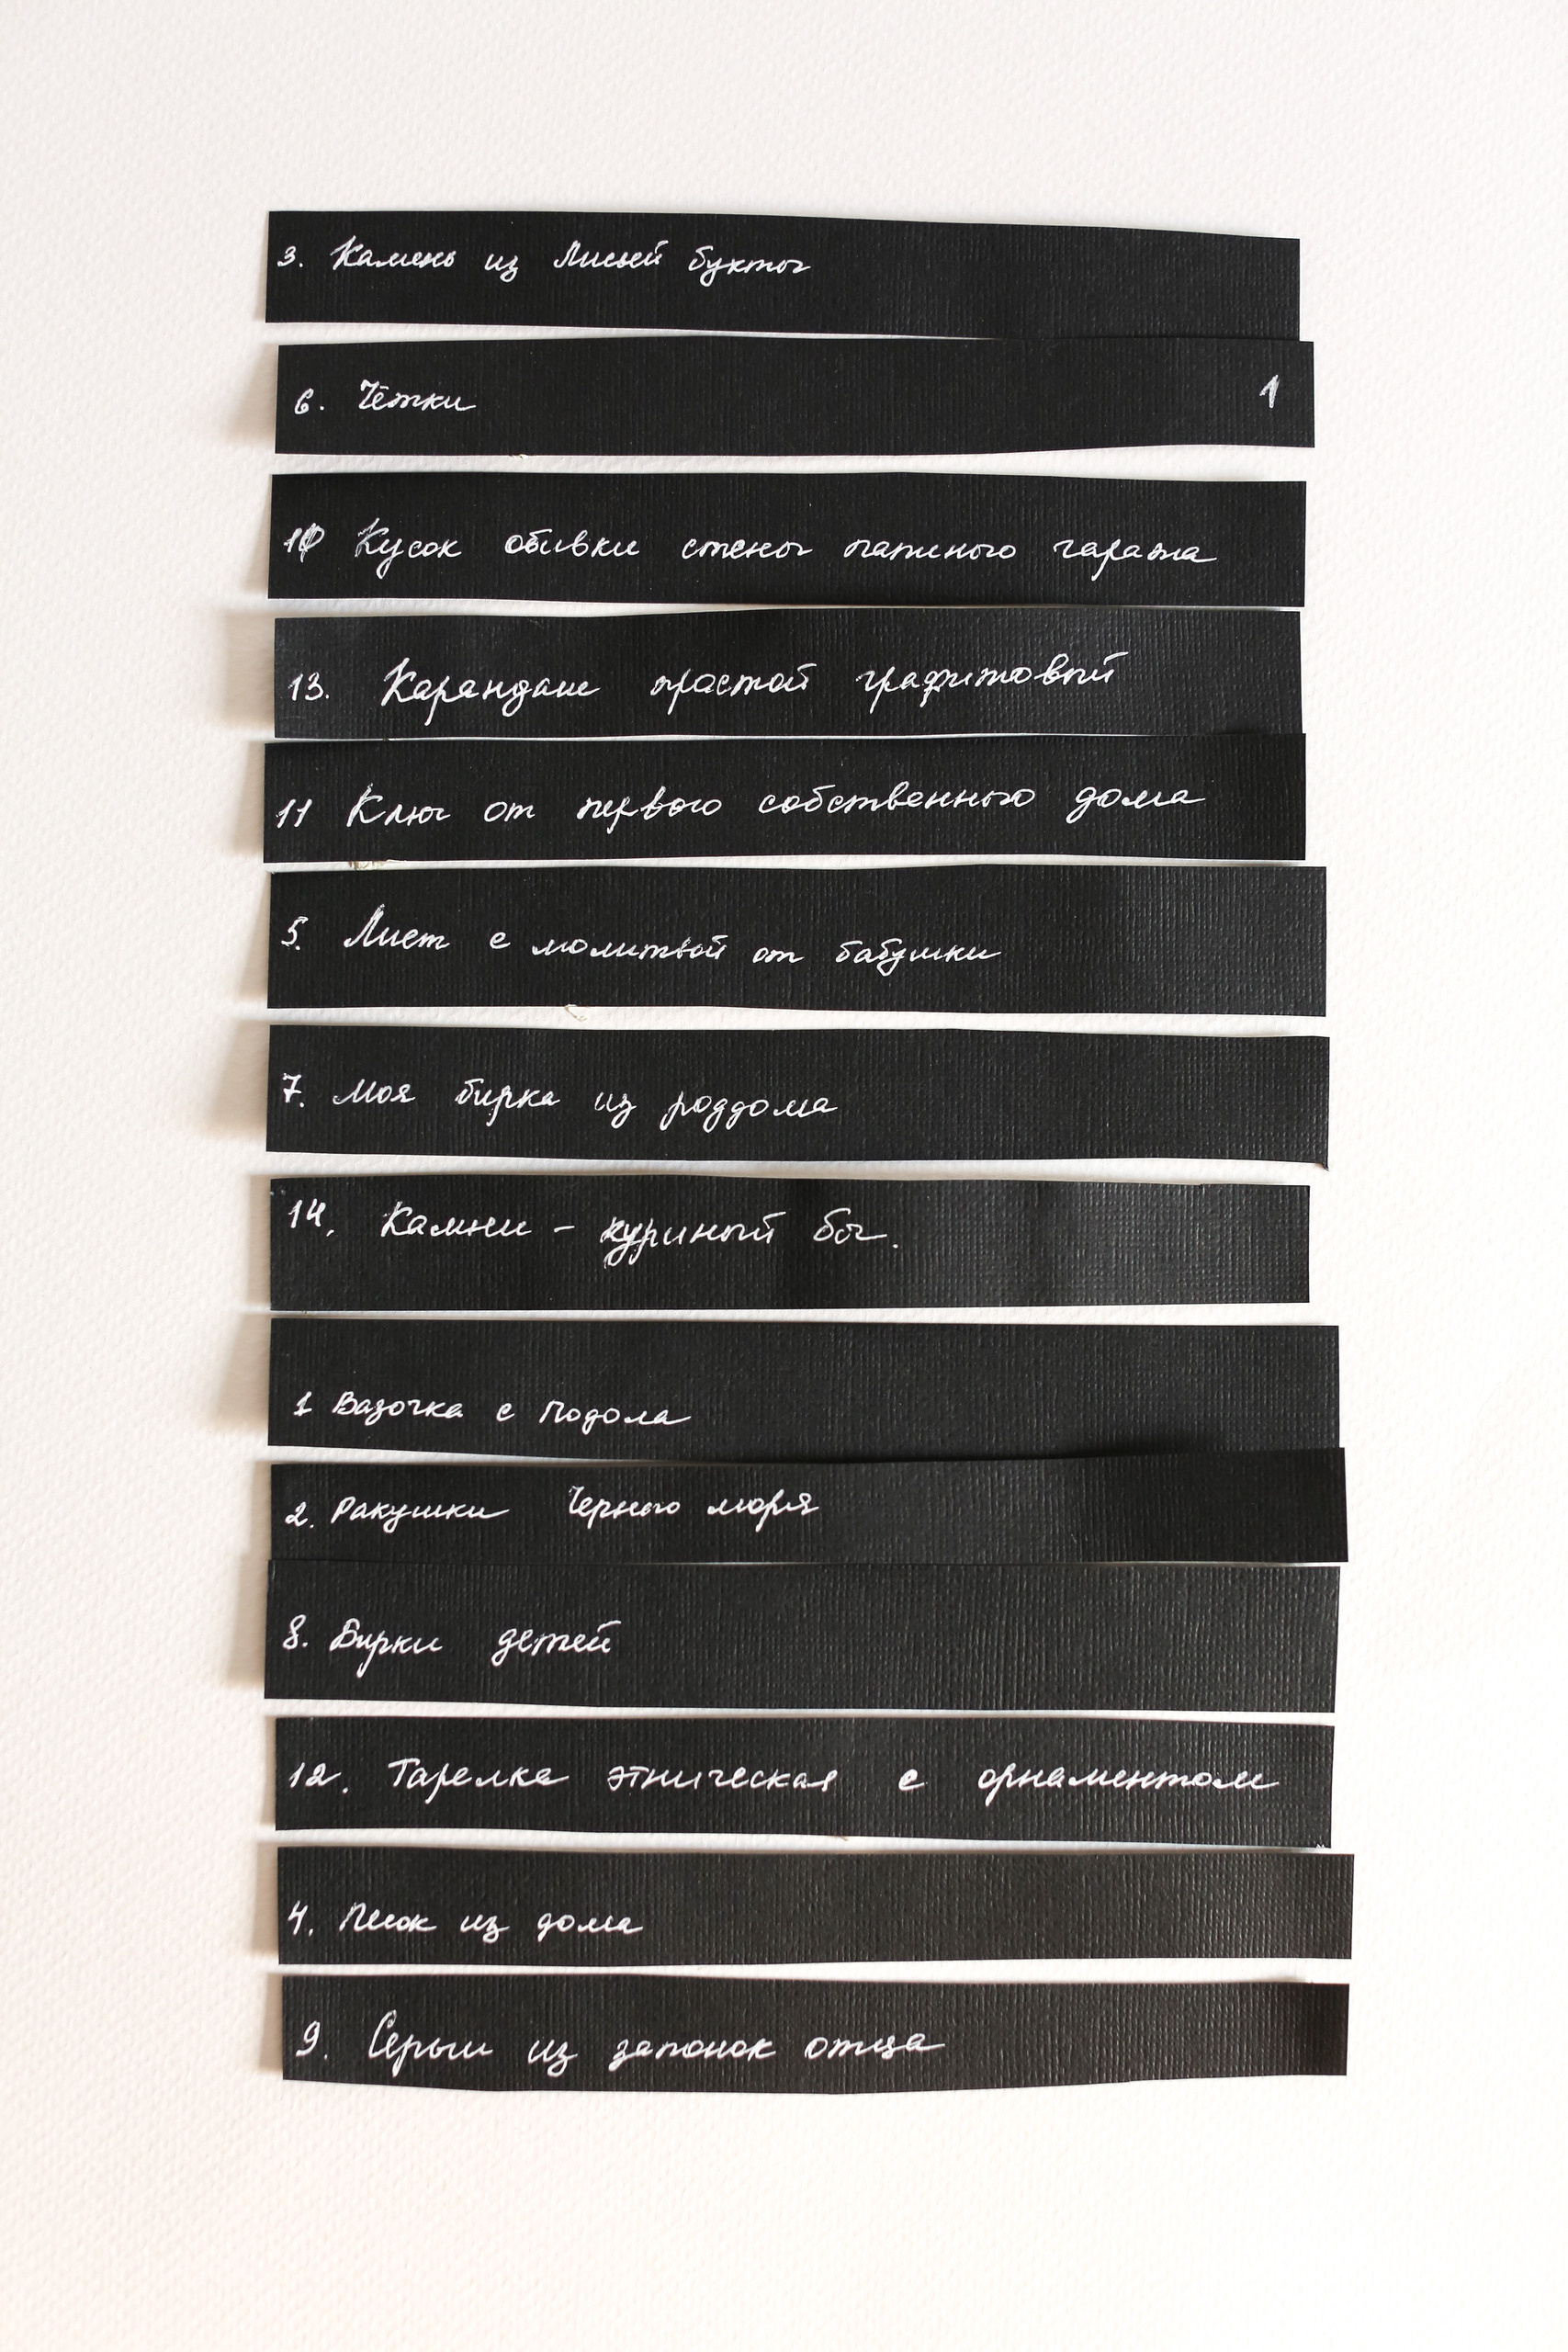 3. Камень из Лисьей бухты
6. Чётки 1
10 Кусок обивки стены папиного гаража
13. Карандаш простой графитовый
11 Ключ от первого собственного дома
5. Лист с молитвой от бабушки
7. Моя бирка из роддома
14. Камни - куриный бог.
1 Вазочка с Подола
2. Ракушки Черного моря
8. Бирки детей
12. Тарелка этническая с орнаментом
4. Песок из дома
9. Серьги из запонок отца